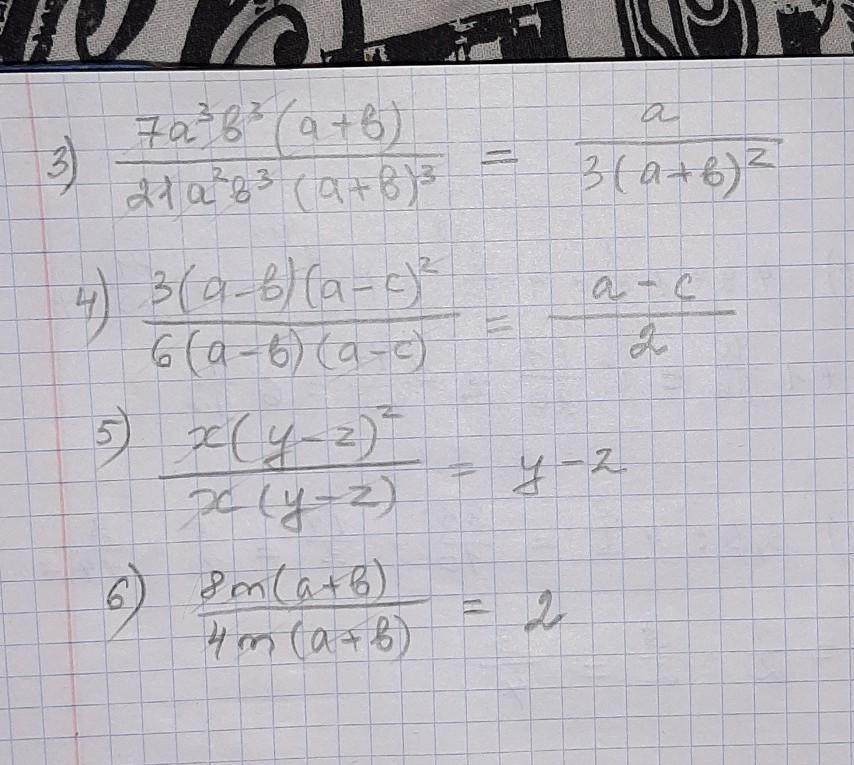 3) \frac{7a^3b^3(a+b)}{21a^2b^3(a+b)^3} = \frac{a}{3(a+b)^2}
4) \frac{3(a-b)(a-c)^2}{6(a-b)(a-c)} = \frac{a-c}{2}
5) \frac{x(y-z)^2}{x(y-z)} = y-z
6) \frac{8m(a+b)}{4m(a+b)} = 2